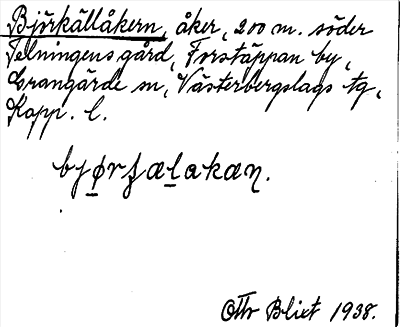 Björkällåkern, åker, 200 m. söder
Telningens gård, Forstäppan by,
Grangärde sn, Västerbergslags tg,
Kopp. l.
bjørʃælakæn.
Otto Blixt 1938.